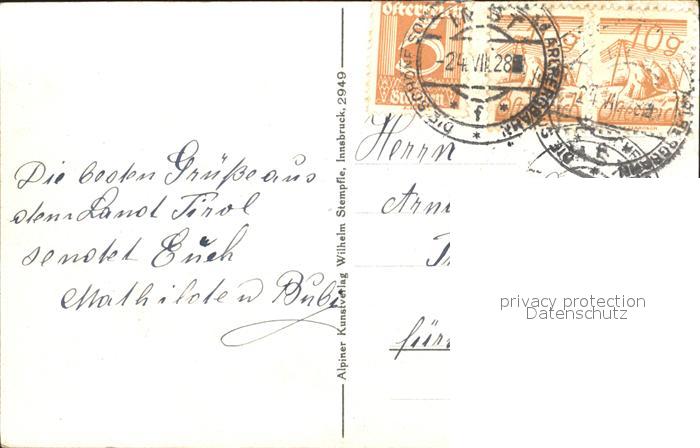 Die besten Grüße aus
dem Landl Tirol
sendet Euch
Mathilde u Bubi
Alpiner Kunstverlag Wilhelm Stempfle, Innsbruck, 2949
Österreich
5
Groschen
10 g
10 g
IMST
-24.VII.28
Herrn
Arn
für
privacy protection
Datenschutz